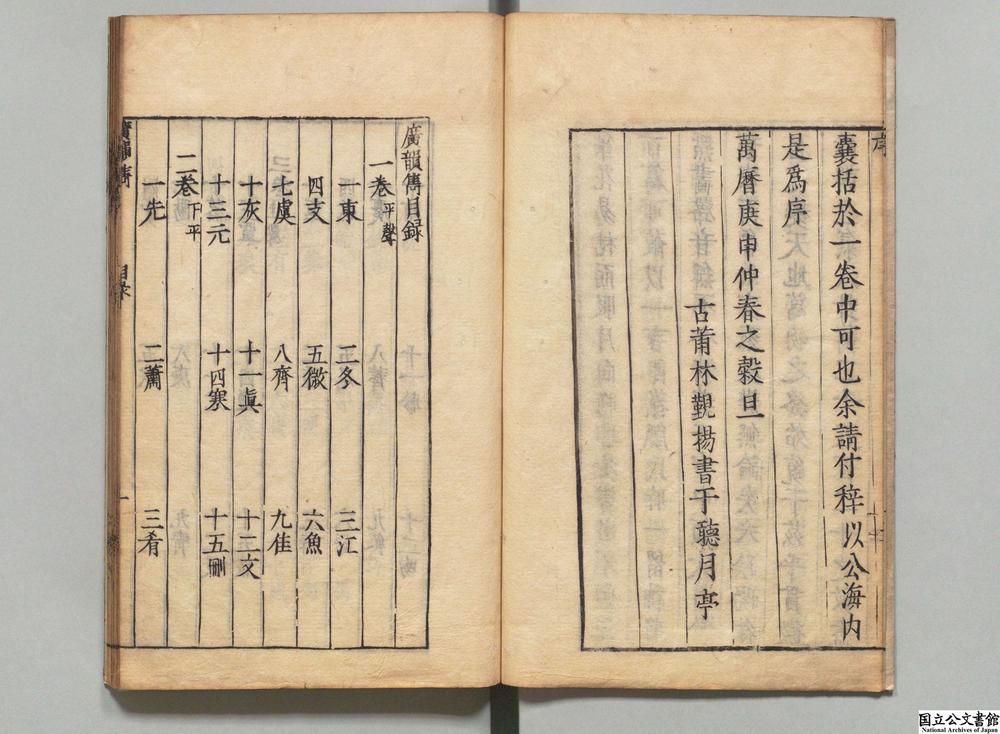 囊括於一卷中可也余請付稡以公海内
是爲序
萬曆庚申仲春之穀旦
古莆林覲揚書于聽月亭
廣韻儁目錄
一卷平聲
一東 二冬 三江
四支 五微 六魚
七虞 八齊 九佳
十灰 十一真 十二文
十三元 十四寒 十五刪
二卷下平
一先 二蕭 三肴
目錄
一
国立公文書館
National Archives of Japan